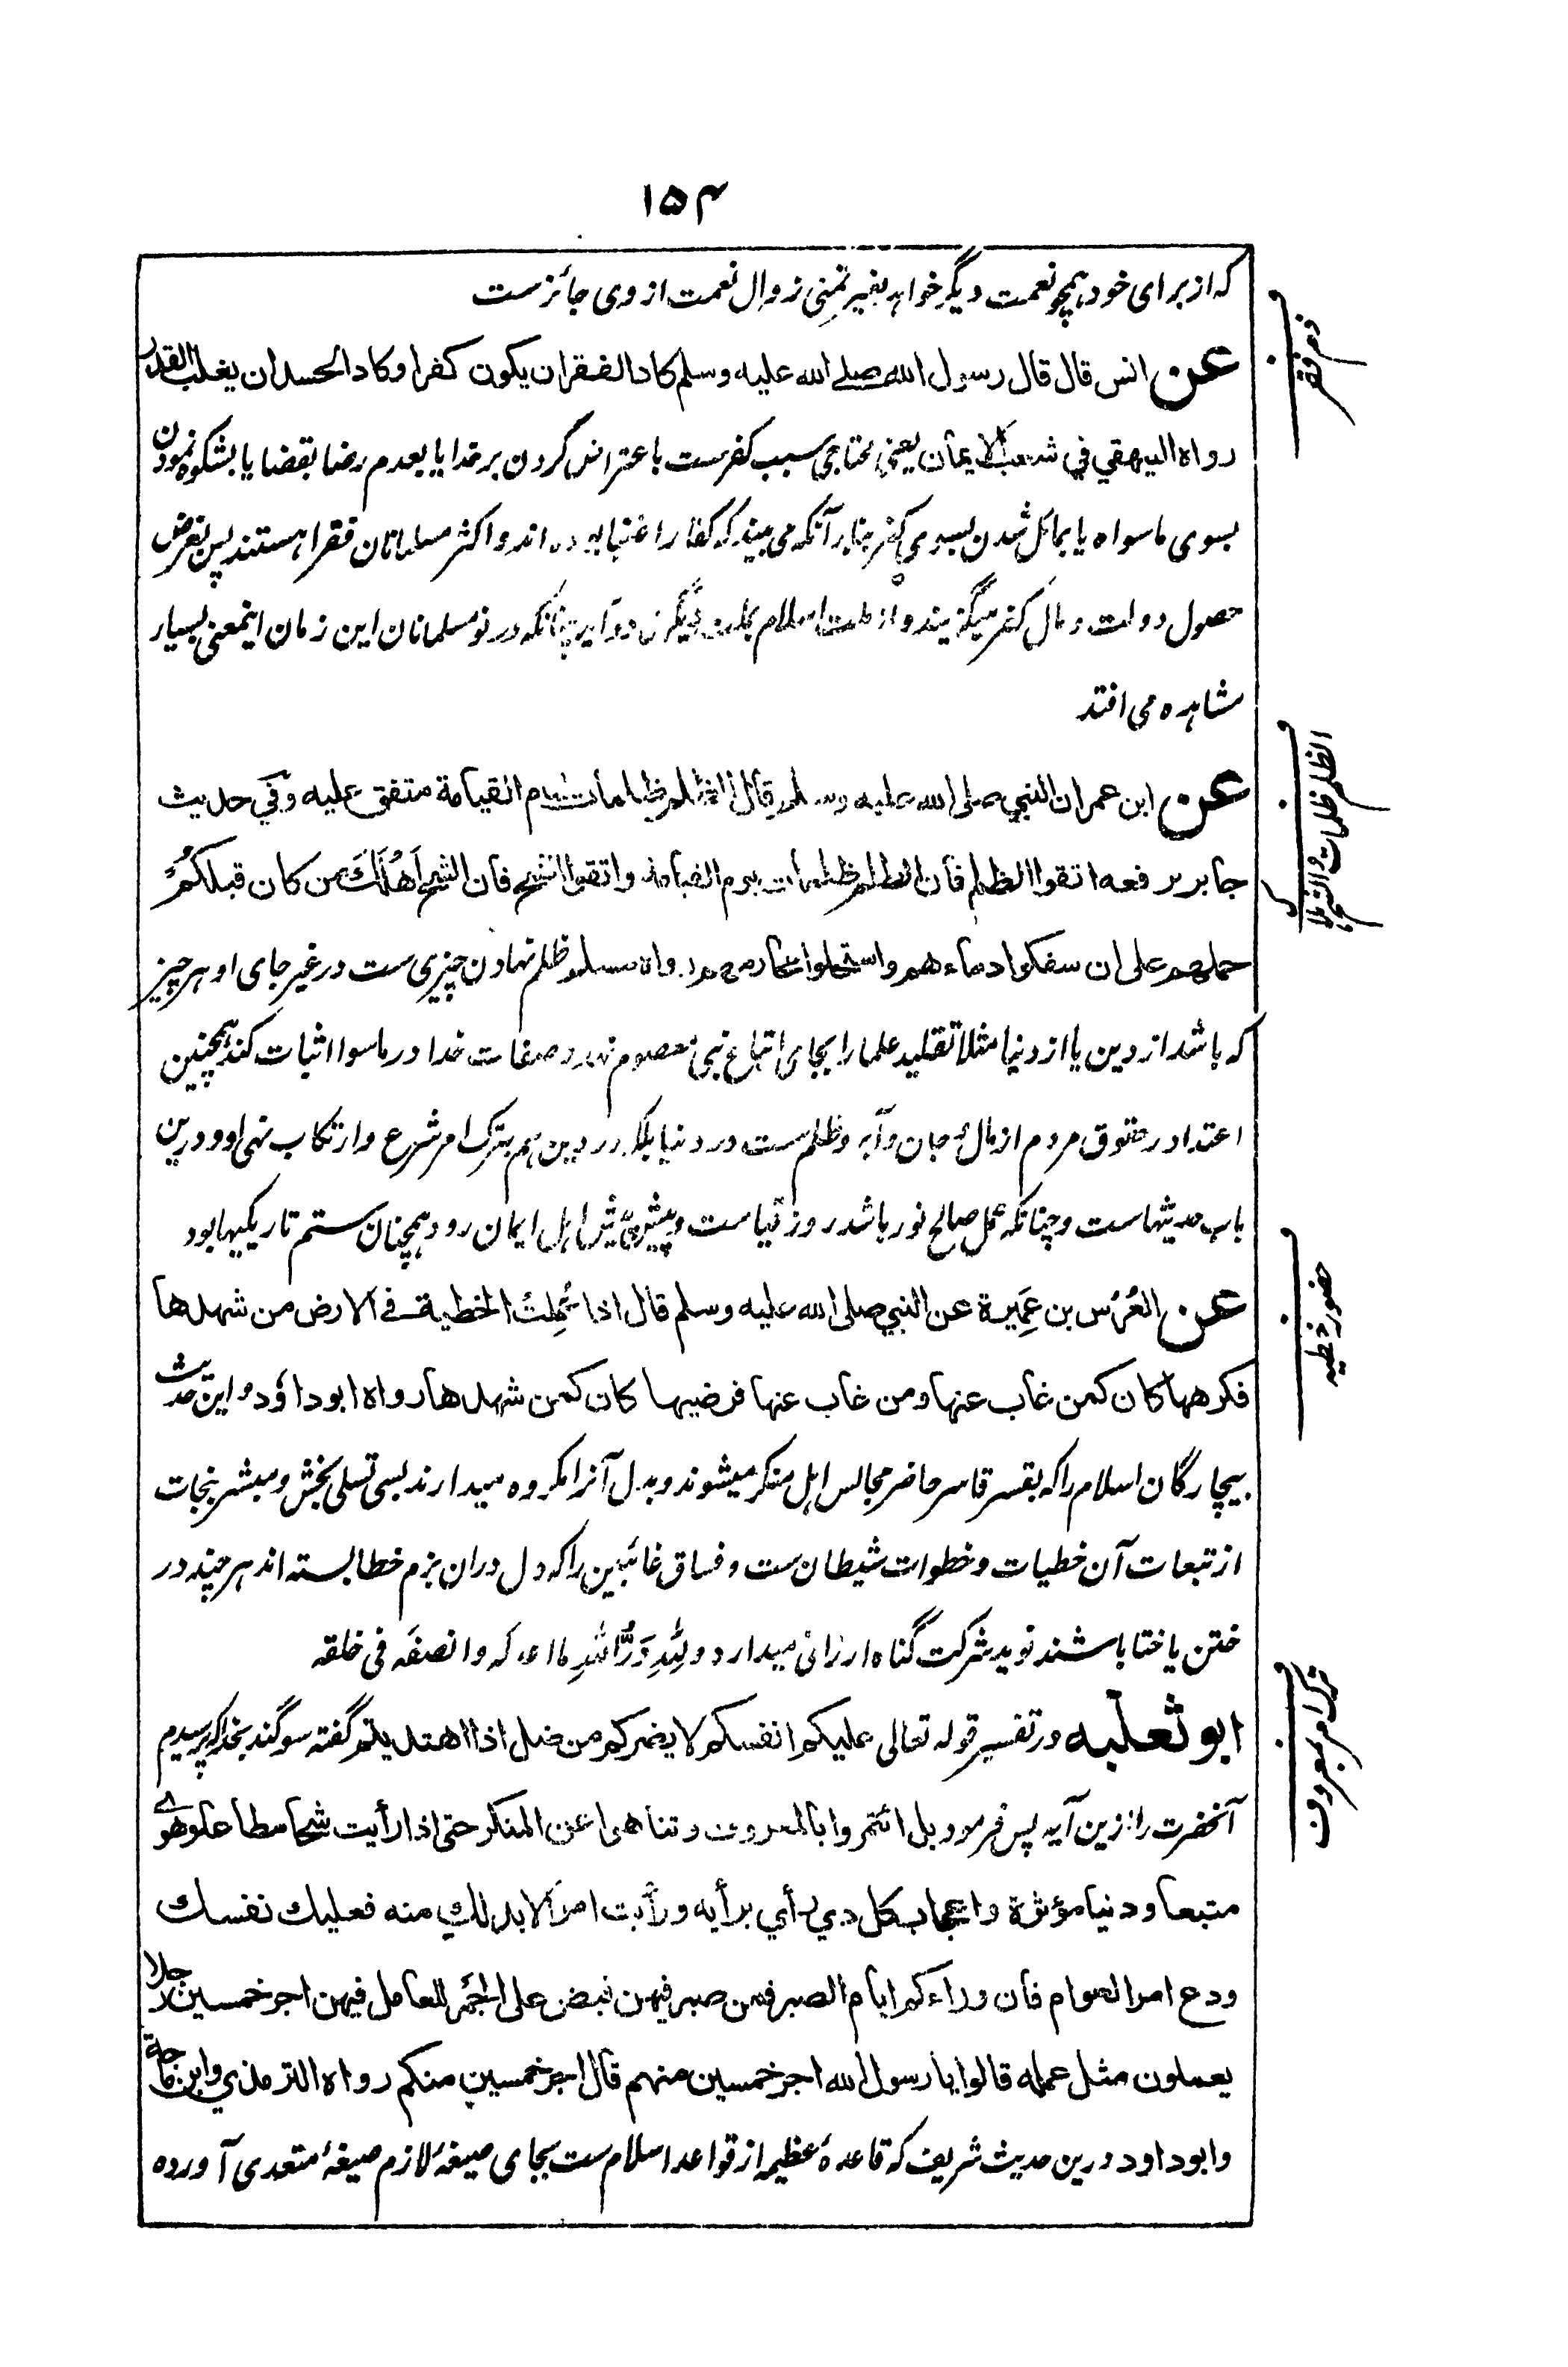 ۱۵۴
که از برای خود همچو نعمت دیگر خواهد بغیر تمنی زوال نعمت از وی جائزست
عن انس قال قال رسول الله صلے الله علیه وسلم کاد الفقران یکون کفرا وکاد الحسدان یغلب القدر
رواه البیهقي في شعب الایمان یعنی محتاجی سبب کفرست باعتراض کردن بر خدا یا بعدم رضا بقضا یا بشکوه نمودن
بسوی ماسواه یا بمائل شدن بسوی کفر بنابر آنکه می بیند که کفار اغنیا بوده اند و اکثر مسلمانان فقرا هستند پس بغرض
حصول دولت و مال کفر میگزینند و از ملت اسلام بملت دیگر می درآیند چنانکه در نو مسلمانان این زمان اینمعنی بسیار
مشاهده می افتد
عن ابن عمران النبي صلی الله علیه وسلم قال الظلم ظلمات یوم القیامة متفق علیه وفي حدیث
جابر یرفعه اتقوا الظلم فان الظلم ظلمات یوم القیامة واتقوا الشح فان الشح اَهْلَكَ من کان قبلکم
حملهم علی ان سفکوا دماءهم واستحلوا محارمهم رواه مسلم ظلم نهادن چیزی ست در غیر جای او هر چیز
که باشد از دین یا از دنیا مثلا تقلید علما را بجای اتباع نبی معصوم نهد و صفات خدا در ماسوا اثبات کند همچنین
اعتدا در حقوق مردم از مال و جان و آبرو ظلم ست در دنیا بلکه در دین هم بترک امر شرع و ارتکاب نهی او و درین
باب حدیثهاست و چنانکه عمل صالح نور باشد روز قیامت و پیش پیش اهل ایمان رود همچنان ستم تاریکیها بود
عن العُرْس بن عَمِیرة عن النبي صلی الله علیه وسلم قال اذا عُمِلتْ الخطیة فے الارض من شهدها
فکرهها کان کمن غاب عنها ومن غاب عنها فرضیها کان کمن شهدها رواه ابو داؤد و این حدیث
بیچارگان اسلام را که بقسر قاسر حاضر مجالس اهل منکر میشوند و بدل آنرا مکروه میدارند بسی تسلی بخش و مبشر بنجات
از تبعات آن خطیات و خطوات شیطان ست و فساق غائبین را که دل دران بزم خطا بسته اند هر چند در
ختن یا ختا باشند نوید شرکت گناه ارزانی میدارد و لِلّهِ دَرُّ الشرع ما اعدله وانصفَه فی خلقه
ابو ثعلبه در تفسیر قوله تعالی علیکم انفسکم لا یضرکم من ضل اذا اهتدیتم گفته سوگند بخدا که پرسیدم
آنحضرت را ازین آیه پس فرمود بل ائتمروا بالمعروف وتناهوا عن المنکر حتی اذا رأیت شحا مطاعا وهوے
متبعا ودنیا مؤثرة واعجاب کل ذي رأي برأیه ورأیت امرا لابد لك منه فعلیك نفسك
ودع امر العوام فان وراءکم ایام الصبر فمن صبر فیهن قبض علی الجمر للعامل فیهن اجر خمسین رجلا
یعملون مثل عمله قالوا یا رسول الله اجر خمسین منهم قال اجر خمسین منکم رواه الترمذي وابن ماجة
وابوداود درین حدیث شریف که قاعدهٔ عظیمه از قواعد اسلام ست بجای صیغهٔ لازم صیغهٔ متعدی آورده
ذم فقر
الظلم ظلمات والشح
حضور خطیه
ترک امر بمعروف